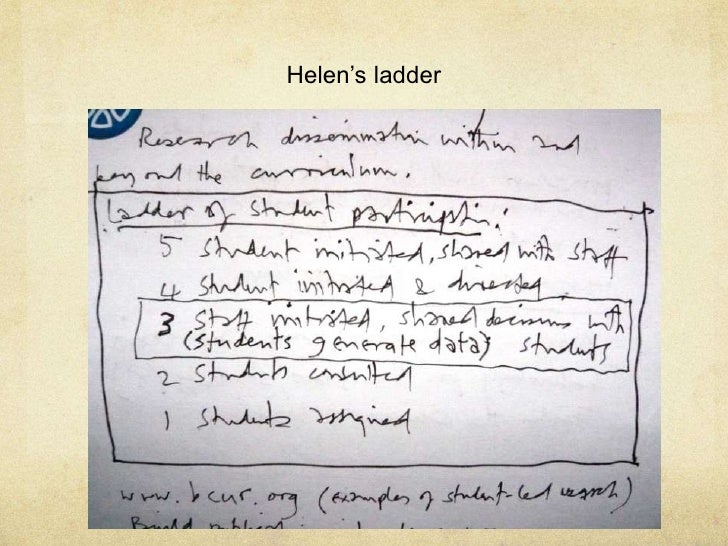 Helen's ladder
Research dissemination within and
beyond the curriculum.
Ladder of student participation:
5 Student initiated, shared with staff
4 Student initiated & directed
3 Staff initiated, shared decisions with
(students generate data) students
2 Students consulted
1 Students assigned
www.bcur.org (examples of student-led research)
Build